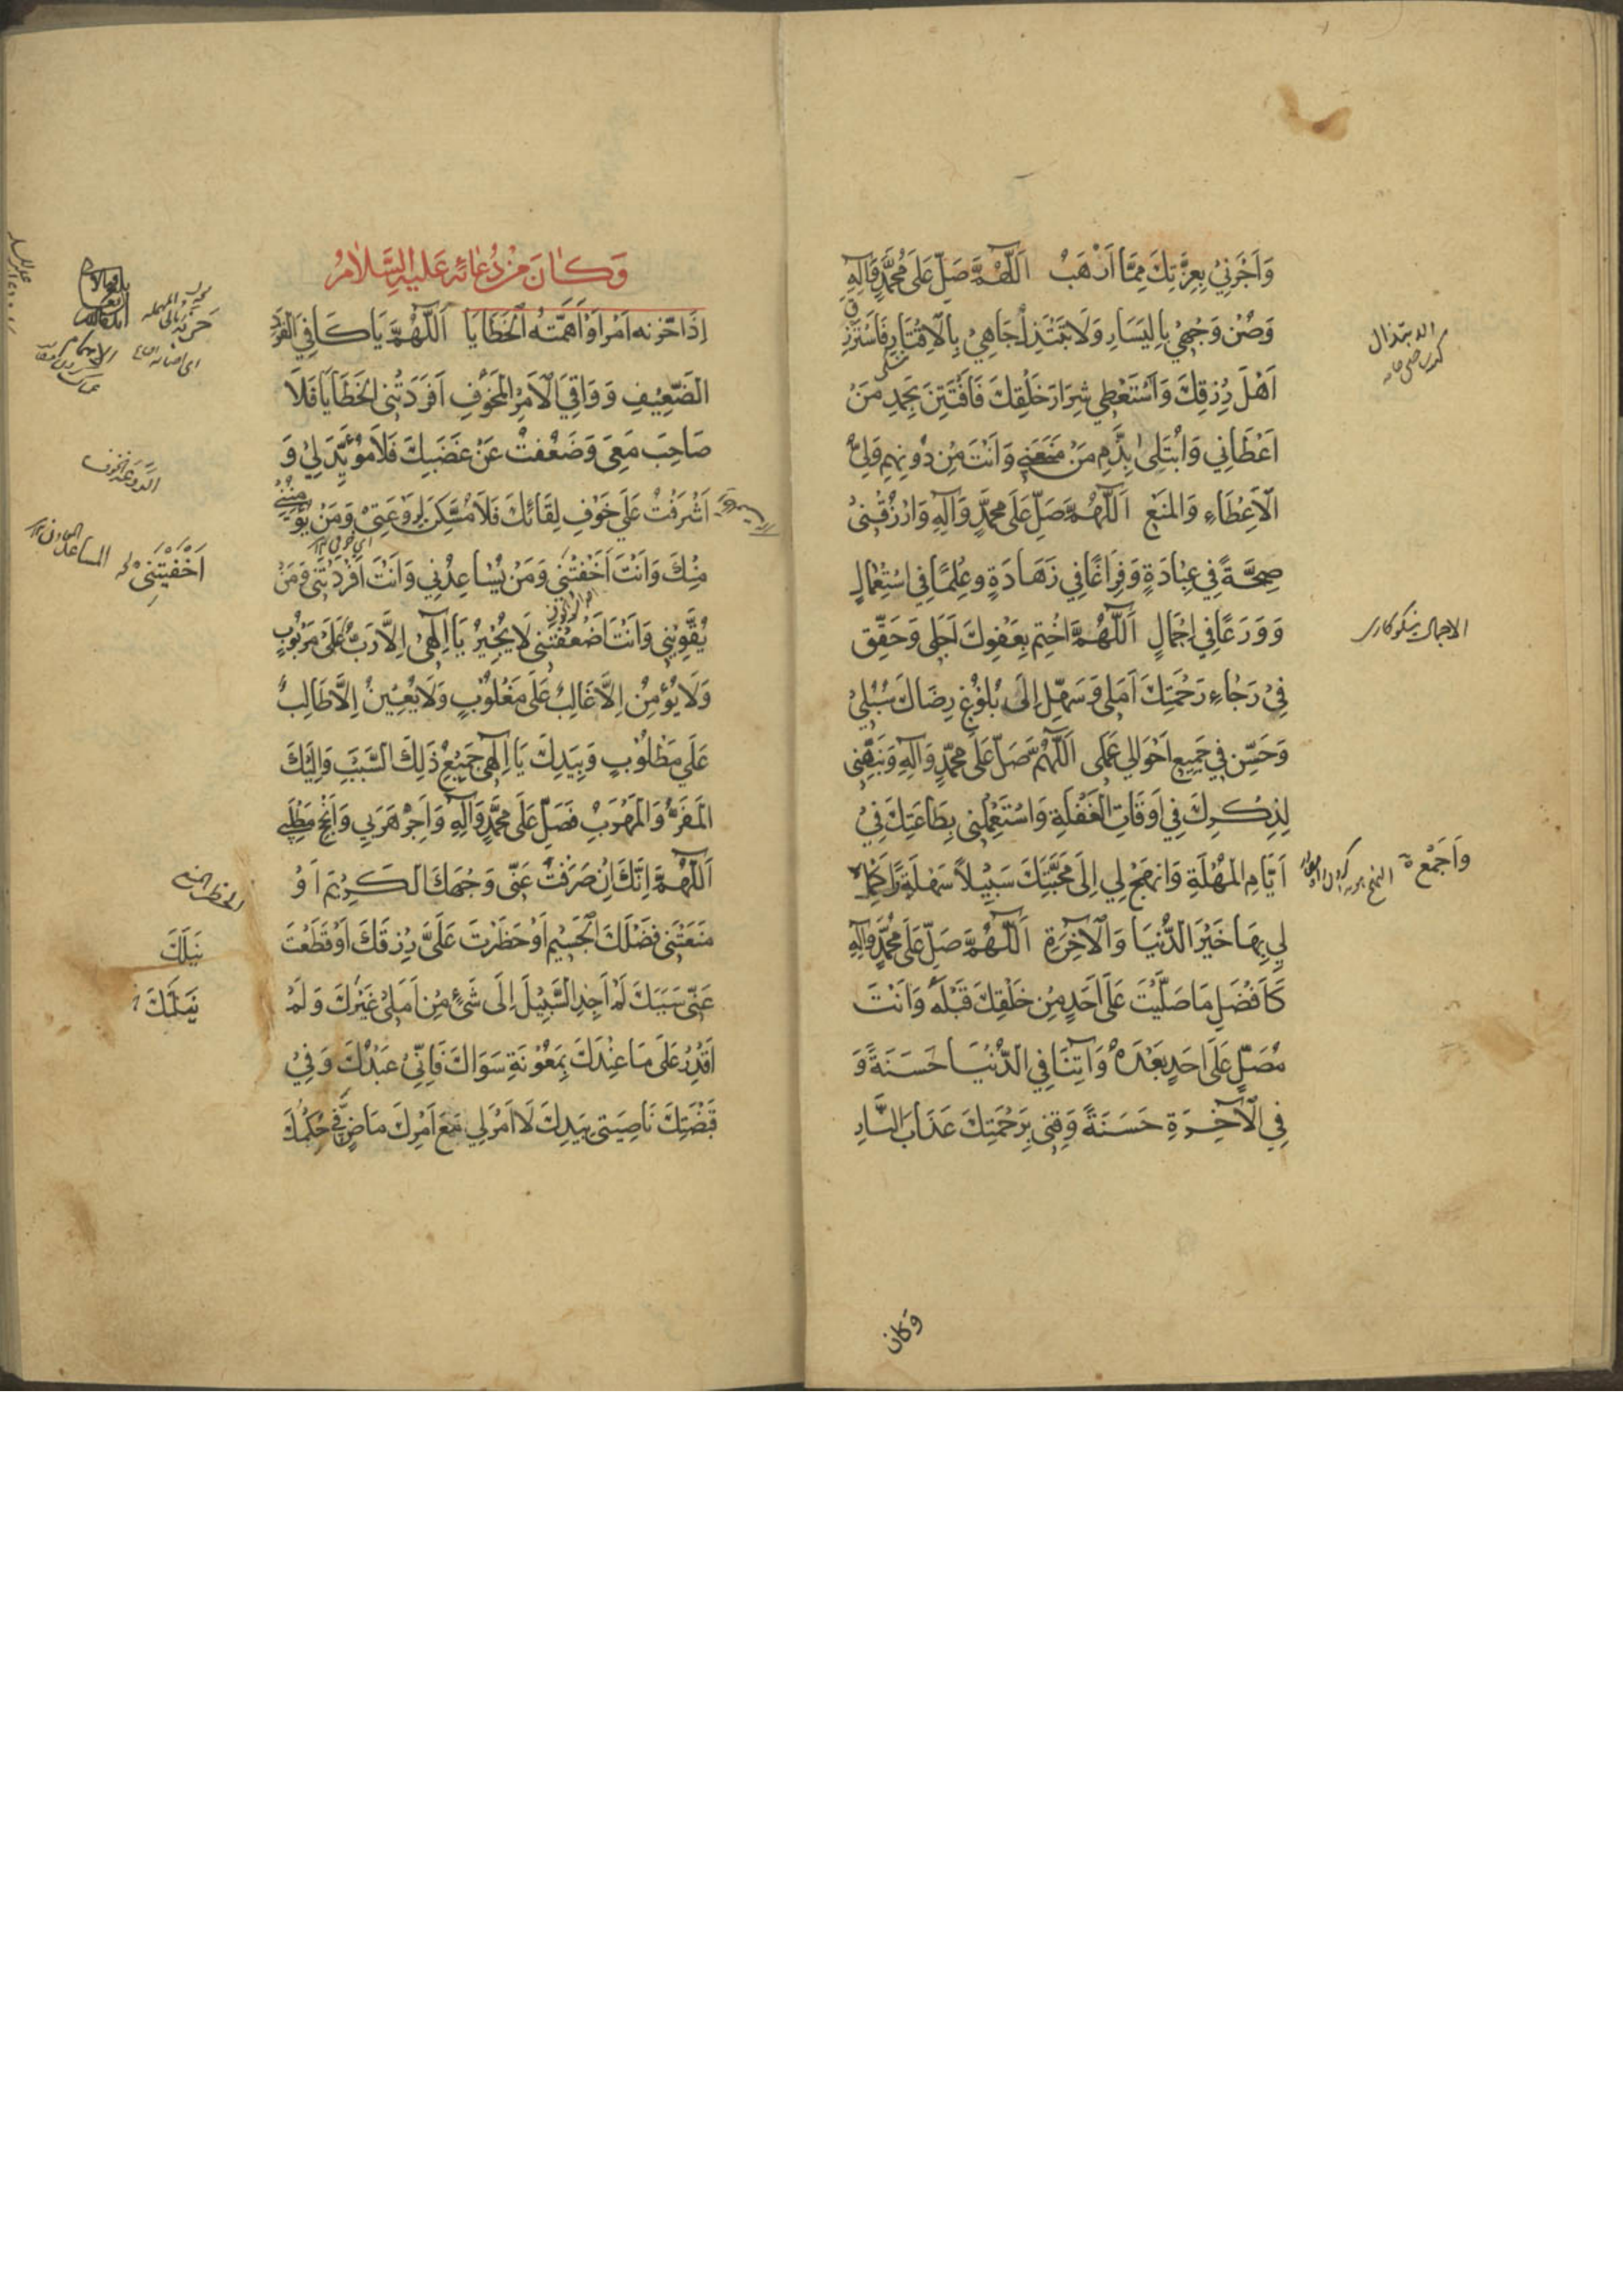 وَاَجِرْنِي بِعِزَّتِكَ مِمَّا اَرْهَبُ اَللّٰهُمَّ صَلِّ عَلَى مُحَمَّدٍ وَآلِهِ
وَصُنْ وَجْهِي بِالْيَسَارِ وَلَا تَبْتَذِلْ جَاهِي بِالْاِقْتَارِ فَاَسْتَرْزِقَ
اَهْلَ رِزْقِكَ وَاَسْتَعْطِي شِرَارَ خَلْقِكَ فَاَفْتَتِنَ بِحَمْدِ مَنْ
اَعْطَانِي وَابْتَلِىٰ بِذَمِّ مَنْ مَنَعَنِي وَاَنْتَ مِنْ دُونِهِمْ وَلِيُّ
الْاِعْطَاءِ وَالْمَنْعِ اَللّٰهُمَّ صَلِّ عَلَى مُحَمَّدٍ وَآلِهِ وَارْزُقْنِي
صِحَّةً فِي عِبَادَةٍ وَفَرَاغًا فِي زَهَادَةٍ وَعِلْمًا فِي اسْتِعْمَالٍ
وَوَرَعًا فِي اِجْمَالٍ اَللّٰهُمَّ اخْتِمْ بِعَفْوِكَ اَجَلِي وَحَقِّقْ
فِي رَجَاءِ رَحْمَتِكَ اَمَلِي وَسَهِّلْ اِلَى بُلُوغِ رِضَاكَ سُبُلِي
وَحَسِّنْ فِي جَمِيعِ اَحْوَالِي عَمَلِي اَللّٰهُمَّ صَلِّ عَلَى مُحَمَّدٍ وَآلِهِ وَنَبِّهْنِي
لِذِكْرِكَ فِي اَوْقَاتِ الْغَفْلَةِ وَاسْتَعْمِلْنِي بِطَاعَتِكَ فِي
اَيَّامِ الْمُهْلَةِ وَانْهَجْ لِي اِلَى مَحَبَّتِكَ سَبِيلاً سَهْلَةً اَكْمِلْ
لِي بِهَا خَيْرَ الدُّنْيَا وَالْآخِرَةِ اَللّٰهُمَّ صَلِّ عَلَى مُحَمَّدٍ وَآلِهِ
كَاَفْضَلِ مَا صَلَّيْتَ عَلَى اَحَدٍ مِنْ خَلْقِكَ قَبْلَهُ وَاَنْتَ
مُصَلٍّ عَلَى اَحَدٍ بَعْدَهُ وَآتِنَا فِي الدُّنْيَا حَسَنَةً وَ
فِي الْآخِرَةِ حَسَنَةً وَقِنِي بِرَحْمَتِكَ عَذَابَ النَّارِ
وَكَانَ
الابتذال
الاجمال نیکو کاری
وَاَجْمِعْ
وَكَانَ مِنْ دُعَائِهِ عَلَيْهِ السَّلَامُ
اِذَا حَزَنَهُ اَمْرٌ اَوْ اَهَمَّتْهُ الْخَطَايَا اَللّٰهُمَّ يَا كَافِيَ الْفَرْدِ
الضَّعِيفِ وَوَاقِيَ الْاَمْرِ الْمَخُوفِ اَفْرَدَتْنِي الْخَطَايَا فَلَا
صَاحِبَ مَعِيَ وَضَعُفْتُ عَنْ غَضَبِكَ فَلَا مُؤَيِّدَ لِي وَ
اَشْرَفْتُ عَلَى خَوْفِ لِقَائِكَ فَلَا مُسَكِّنَ لِرَوْعَتِي وَمَنْ يُؤْمِنُنِي
مِنْكَ وَاَنْتَ اَخَفْتَنِي وَمَنْ يُسَاعِدُنِي وَاَنْتَ اَفْرَدْتَنِي وَمَنْ
يُقَوِّينِي وَاَنْتَ اَضْعَفْتَنِي لَا يُجِيرُ يَا اِلٰهِي اِلَّا رَبٌّ عَلَى مَرْبُوبٍ
وَلَا يُؤْمِنُ اِلَّا غَالِبٌ عَلَى مَغْلُوبٍ وَلَا يُعِينُ اِلَّا طَالِبٌ
عَلَى مَطْلُوبٍ وَبِيَدِكَ يَا اِلٰهِي جَمِيعُ ذَلِكَ السَّبَبِ وَاِلَيْكَ
الْمَفَرُّ وَالْمَهْرَبُ فَصَلِّ عَلَى مُحَمَّدٍ وَآلِهِ وَاَجِرْ هَرَبِي وَاَنْجِحْ مَطْلَبِي
اَللّٰهُمَّ اِنَّكَ اِنْ صَرَفْتَ عَنِّي وَجْهَكَ الْكَرِيمَ اَوْ
مَنَعْتَنِي فَضْلَكَ الْجَسِيمَ اَوْ حَظَرْتَ عَلَيَّ رِزْقَكَ اَوْ قَطَعْتَ
عَنِّي سَبَبَكَ لَمْ اَجِدِ السَّبِيلَ اِلَى شَيْءٍ مِنْ اَمَلِي غَيْرَكَ وَلَمْ
اَقْدِرْ عَلَى مَا عِنْدَكَ بِمَعُونَةِ سِوَاكَ فَاِنِّي عَبْدُكَ وَفِي
قَبْضَتِكَ نَاصِيَتِي بِيَدِكَ لَا اَمْرَ لِي مَعَ اَمْرِكَ مَاضٍ فِيَّ حُكْمُكَ
حَزَنَهُ
الروعة الخوف
اَخْفَيْتَنِي
الحظر المنع
نَيْلَكَ